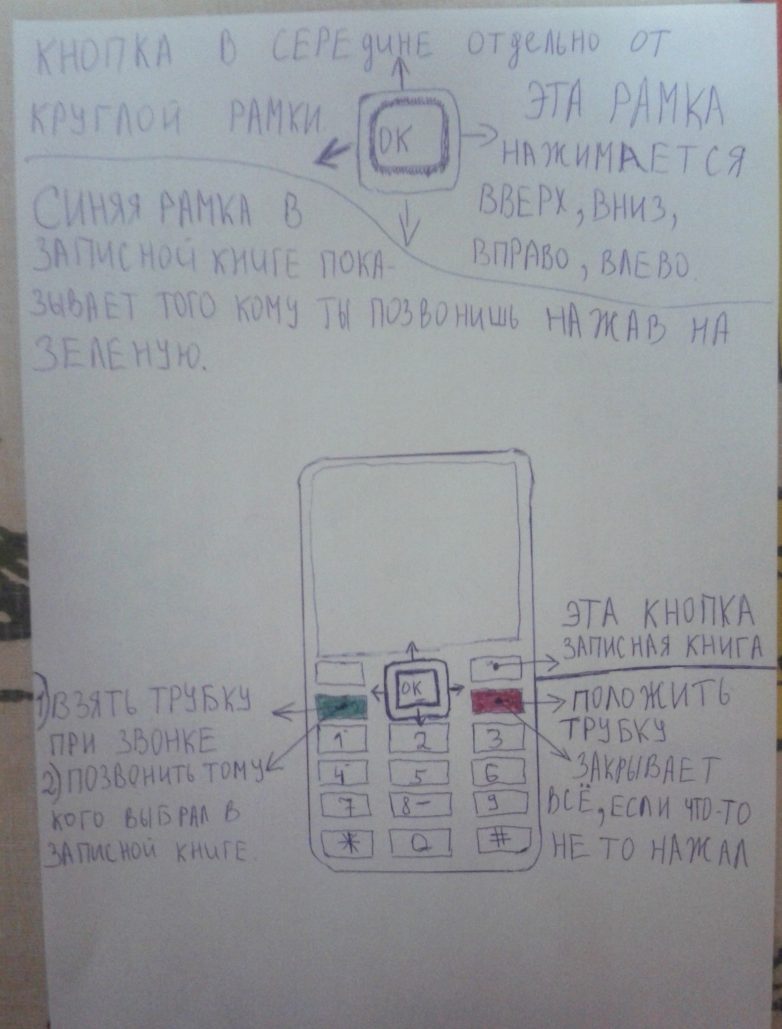 КНОПКА В СЕРЕДИНЕ ОТДЕЛЬНО ОТ
КРУГЛОЙ РАМКИ.
OK
ЭТА РАМКА
НАЖИМАЕТСЯ
ВВЕРХ, ВНИЗ,
ВПРАВО, ВЛЕВО.
СИНЯЯ РАМКА В
ЗАПИСНОЙ КНИГЕ ПОКА-
ЗЫВАЕТ ТОГО КОМУ ТЫ ПОЗВОНИШЬ НАЖАВ НА
ЗЕЛЕНУЮ.
ЭТА КНОПКА
ЗАПИСНАЯ КНИГА
OK
1) ВЗЯТЬ ТРУБКУ
ПРИ ЗВОНКЕ
2) ПОЗВОНИТЬ ТОМУ
КОГО ВЫБРАЛ В
ЗАПИСНОЙ КНИГЕ.
ПОЛОЖИТЬ
ТРУБКУ
ЗАКРЫВАЕТ
ВСЁ, ЕСЛИ ЧТО-ТО
НЕ ТО НАЖАЛ
1 2 3
4 5 6
7 8 9
* 0 #